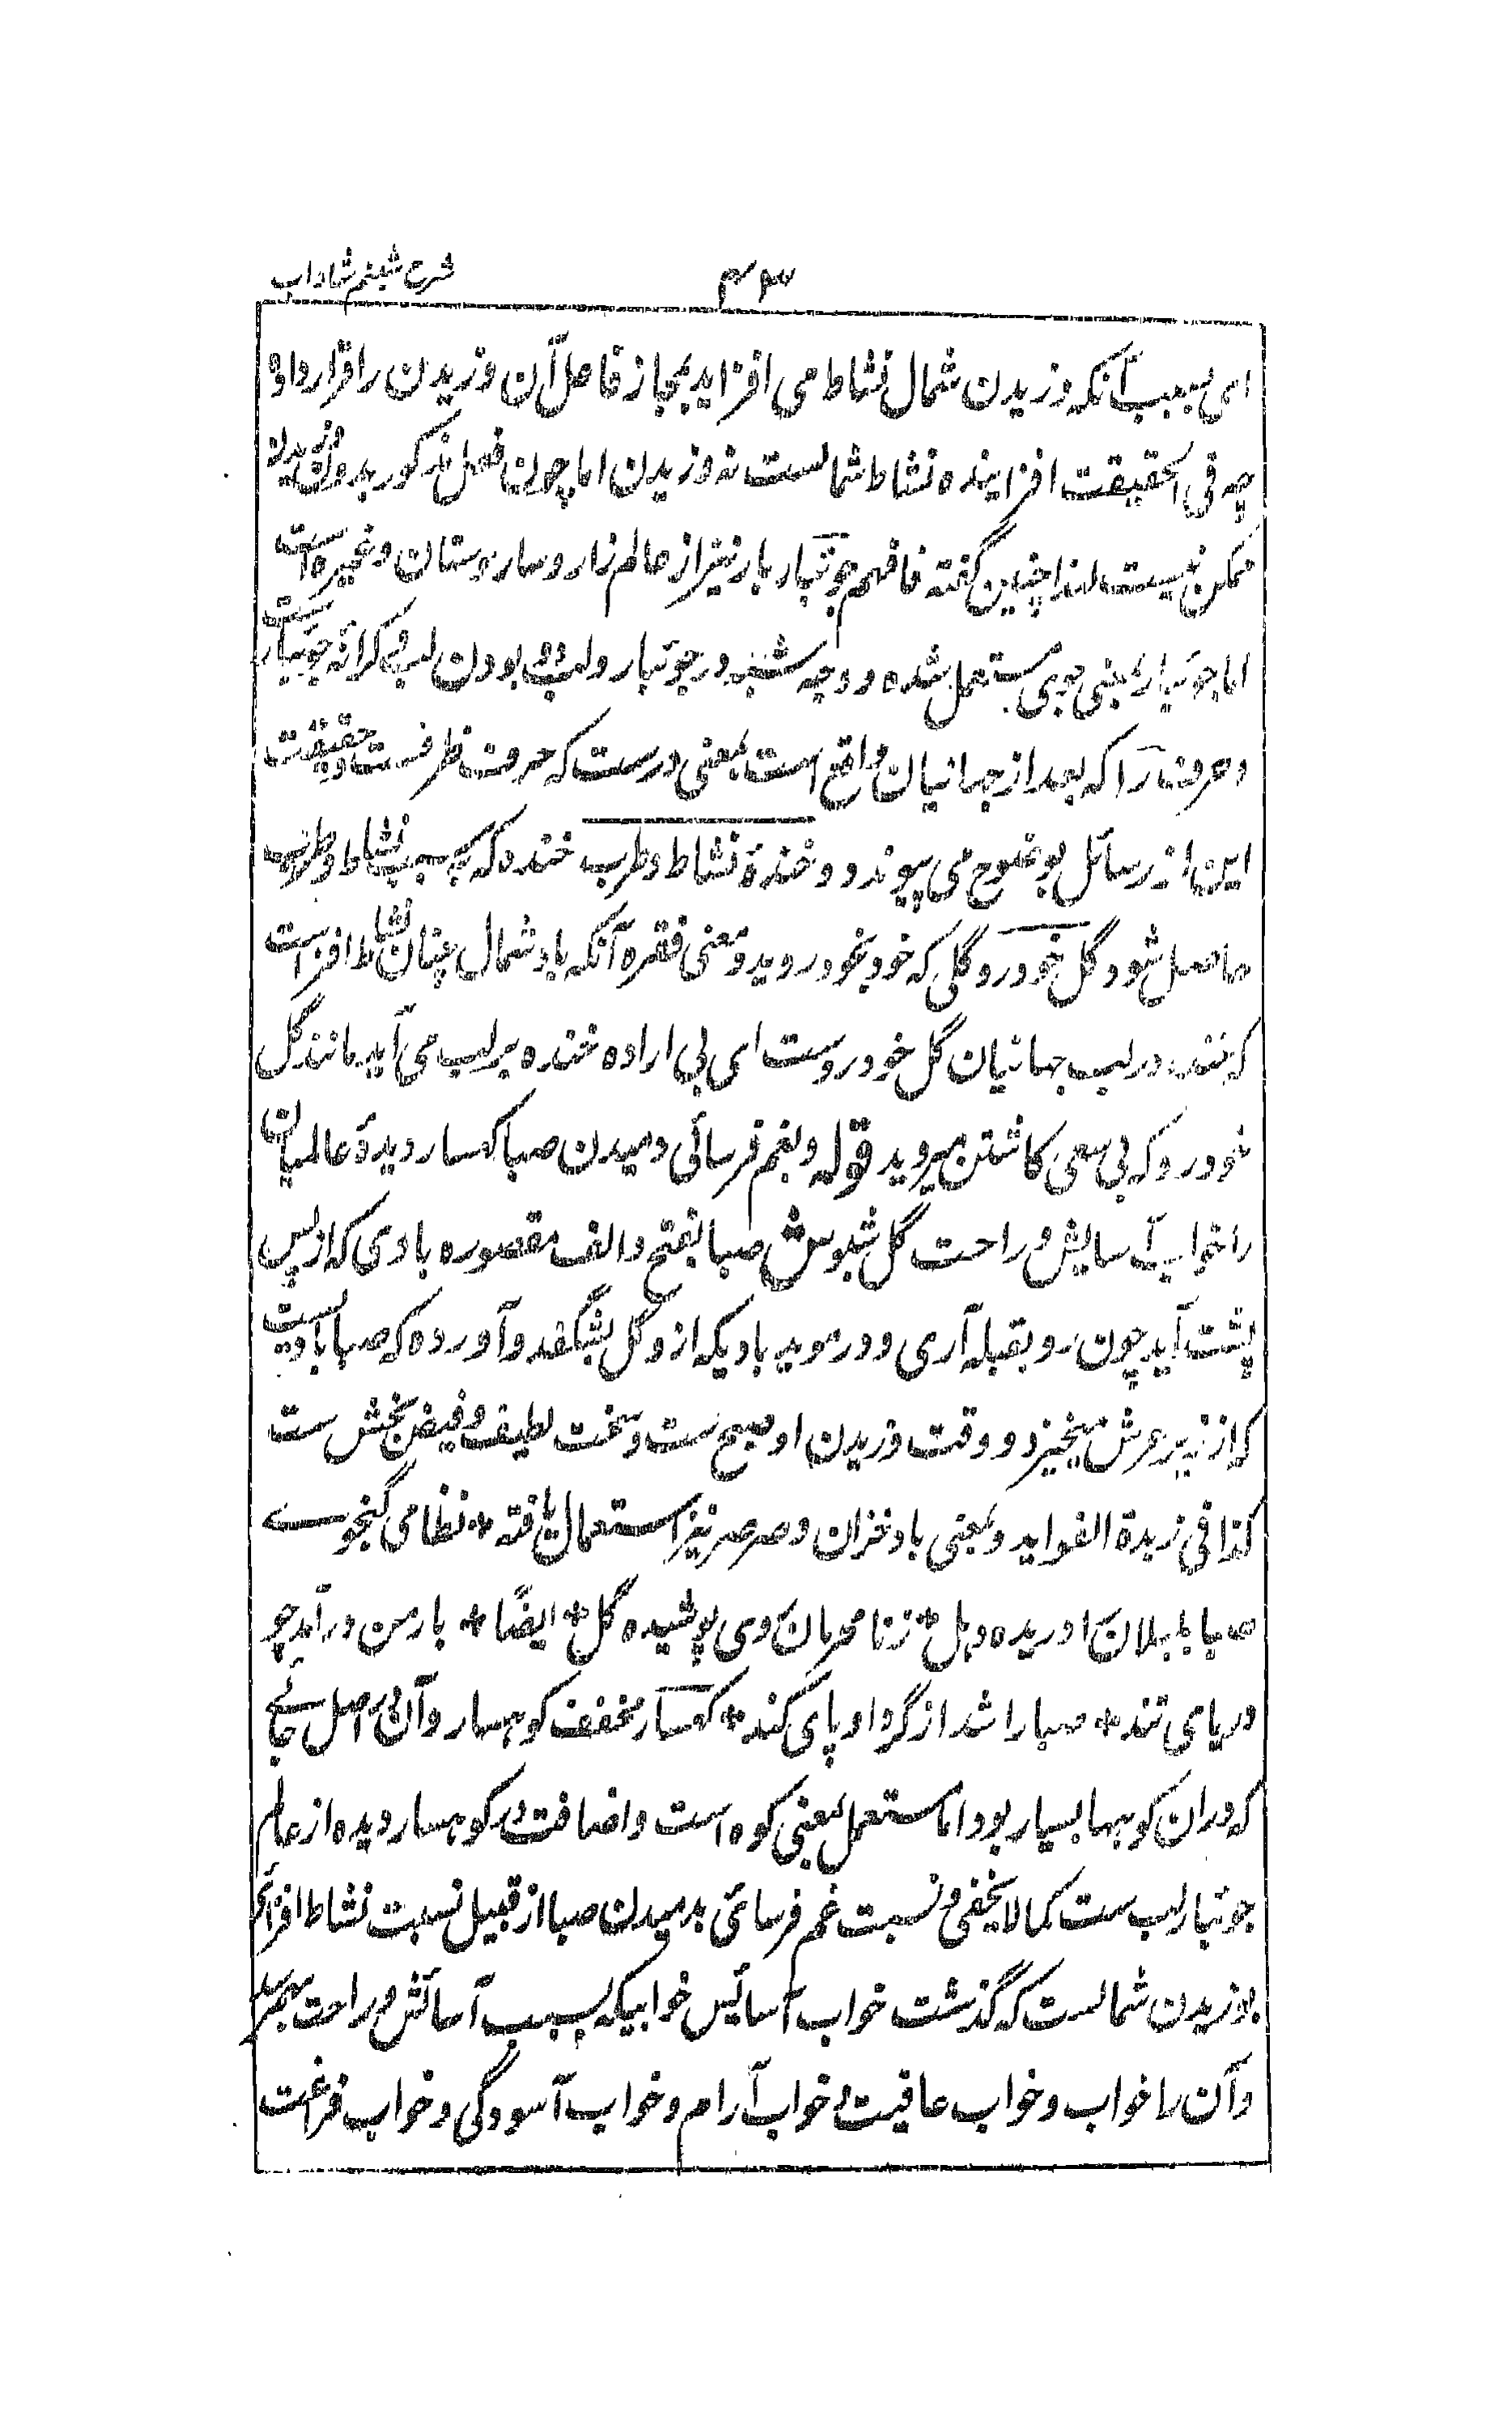 شرح شبنم شاداب
ای بسبب آنکه وزیدن شمال نشاط می افزاید بمجاز فاعل آن وزیدن را قرار داده
چه فی الحقیقت افزاینده نشاط شمالست نه وزیدن اما چون فعل مذکور بدون وزیدن
ممکن نیست لهذا چنین گفته فافهم جوئبار بار نیز از عالم زار و سار و ستان و غیره است
اما جوئبار بمعنی جوی مستعمل شده و وجه شبه در جوئبار و لب بودن لب و کرانه جوئبارست
و حرف را که بعد از جهانیان واقع است بمعنی درست که حرف ظرفست و حقیقت
این از رسائل بوضوح می پیوندد و خندهٔ نشاط و طرب خنده که بسبب نشاط و طرب
حاصل شود گل خودرو گلی که خود بخود روید و معنی فقره آنکه باد شمال چنان نشاط افزاست
که خنده در لب جهانیان گل خودروست ای بی اراده خنده بر لب می آید مانند گل
خودرو که بی سعی کاشتن میروید قوله و بغم فرسائی دمیدن صبا کهسار دیدهٔ عالمیان
را خواب آسایش و راحت گل شبوش صبا بفتح و الف مقصوره بادی که از پس
پشت آید چون رو بقبله آری و در موید بادیکه از و گل بشگفد و آورده که صبا بادیست
که از زیر عرش میخیزد و وقت وزیدن او صبح ست و سخت لطیف و فیض بخش ست
کذا فی زبدة الفواید و بمعنی باد خزان و صرصر نیز استعمال یافته * نظامی گنجوے
صبا بلبلان را دریده دهل * ز نامحرمان روی پوشیده گل * ایضًا * بارمن درآمد چو
دریای تند * صبا را شد از گرد او پای کند * کهسار مخفف کوهسار و آن در اصل جائے
که دران کوهها بسیار بود اما مستعمل بمعنی کوه است و اضافت در کوهسار دیده از عالم
جوئبار لب ست کما لا یخفی و نسبت غم فرسائی بدمیدن صبا از قبیل نسبت نشاط افزائی
بوزیدن شمالست که گذشت خواب آسائیش خوابیکه بسبب آسائش و راحت بهم رسد
و آن را خواب و خواب عافیت و خواب آرام و خواب آسودگی و خواب فراغت